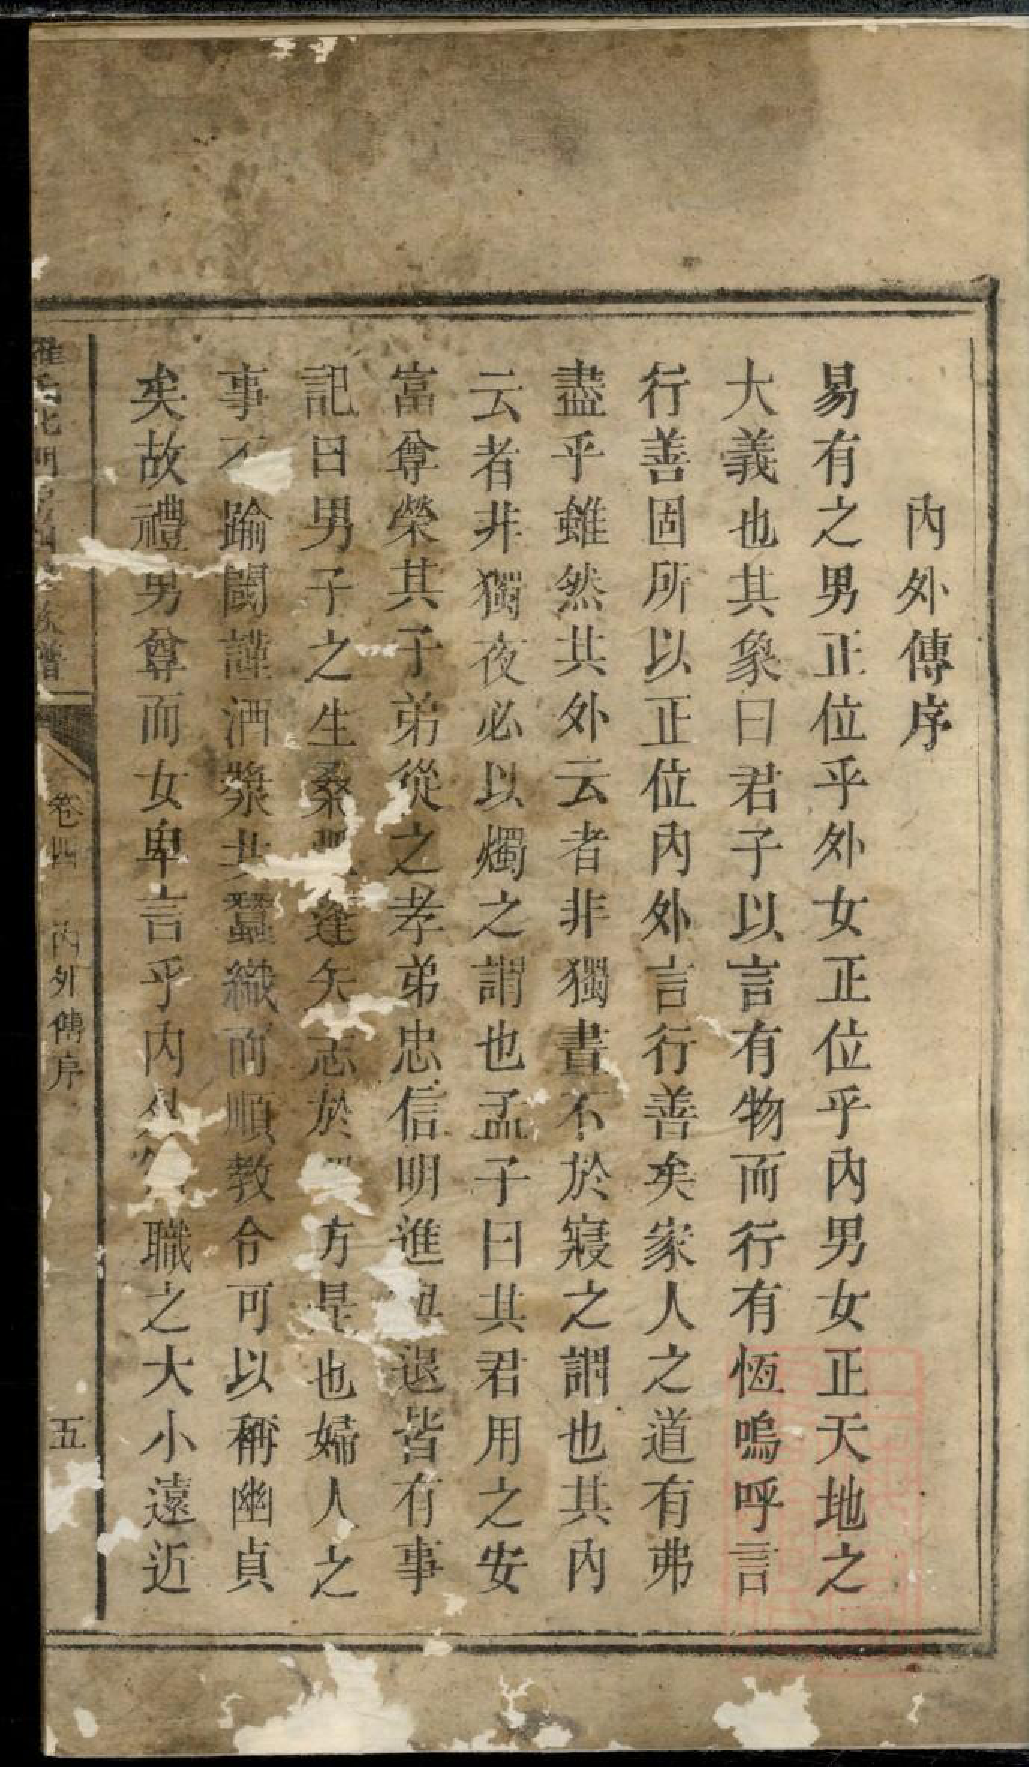 內外傳序
易有之男正位乎外女正位乎內男女正天地之
大義也其象曰君子以言有物而行有恆嗚呼言
行善固所以正位內外言行善矣家人之道有弗
盡乎雖然其外云者非獨晝不於寢之謂也其內
云者非獨夜必以燭之謂也孟子曰其君用之安
富尊榮其子弟從之孝弟忠信明進退皆有事
記曰男子之生桑蓬矢志於方是也婦人之
事不踰閾謹酒漿共蠶織而順教令可以稱幽貞
矣故禮男尊而女卑言乎內外職之大小遠近
卷四
內外傳序
五